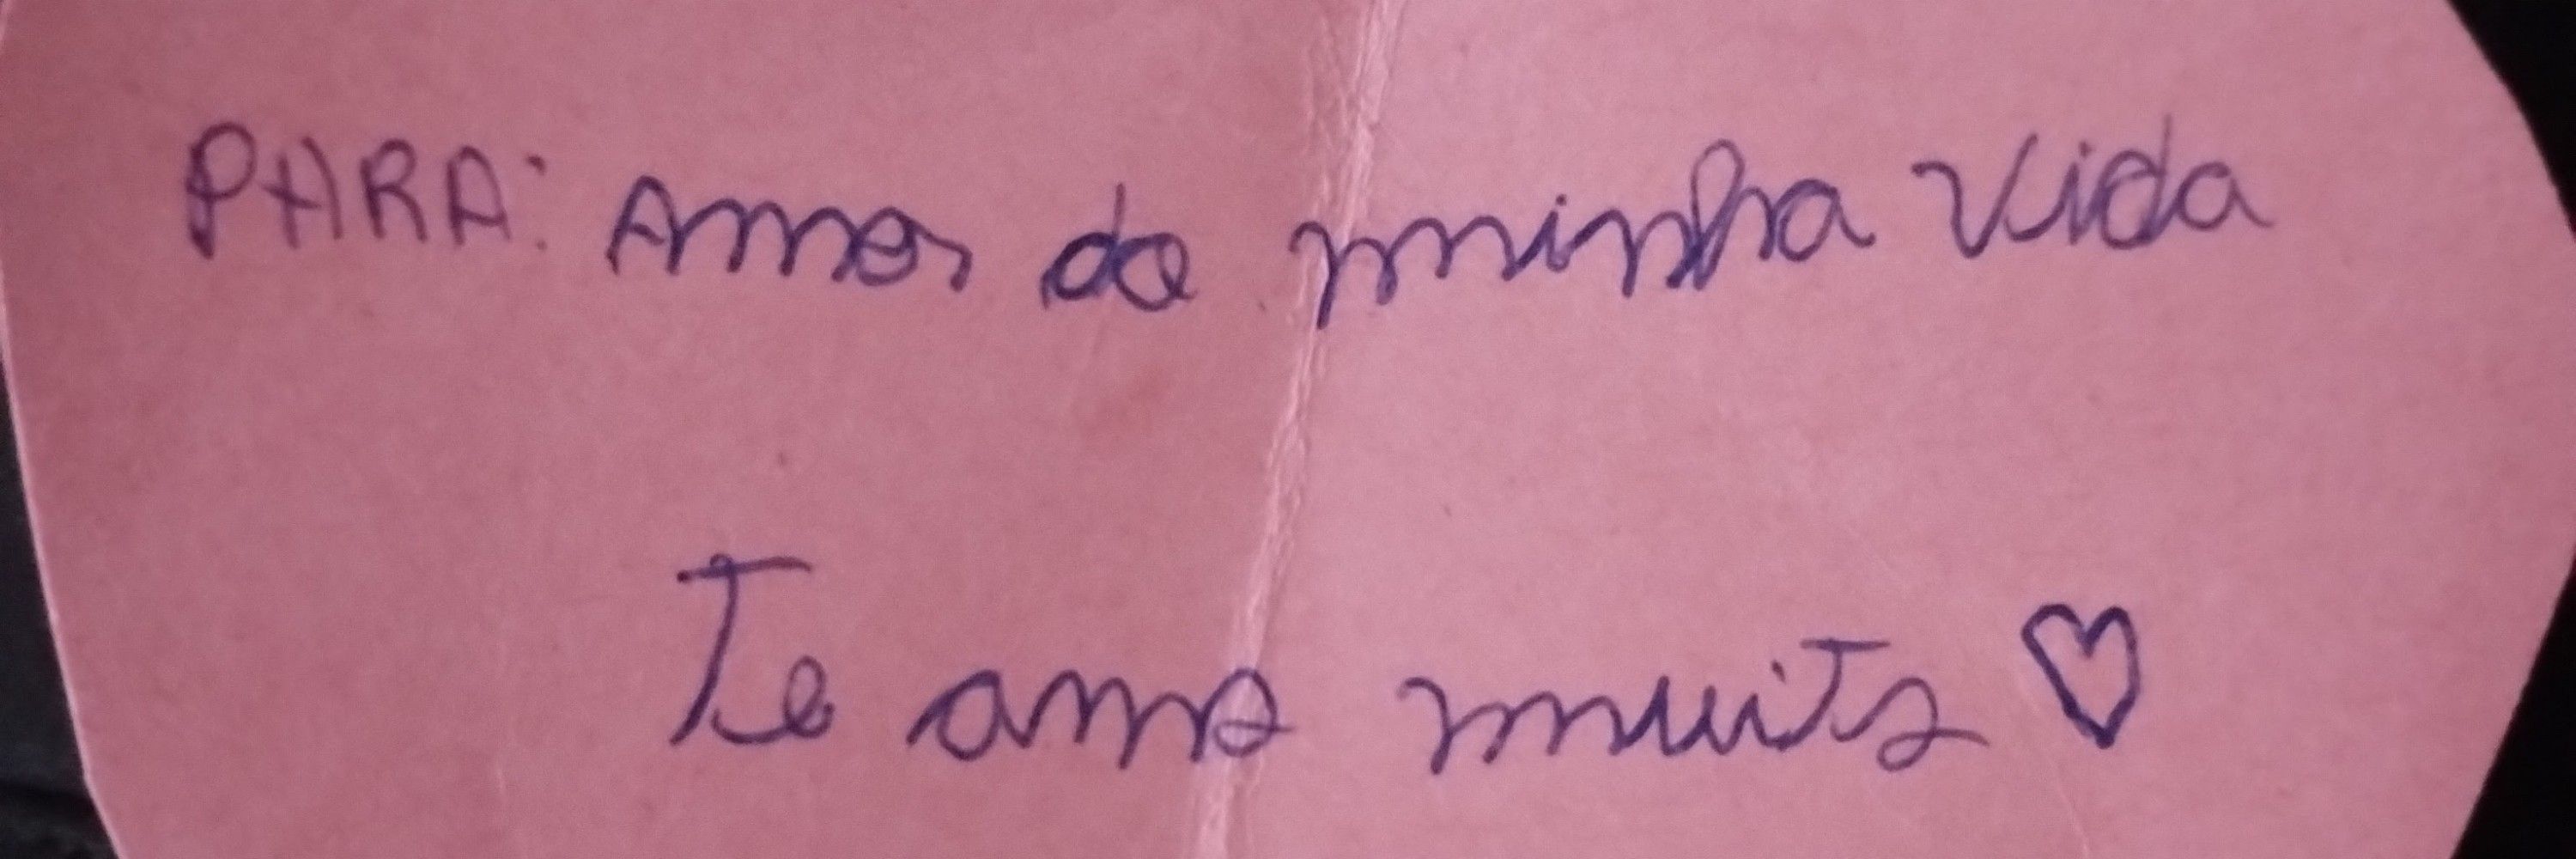 PARA: Amor da minha vida
Te amo muito ♡